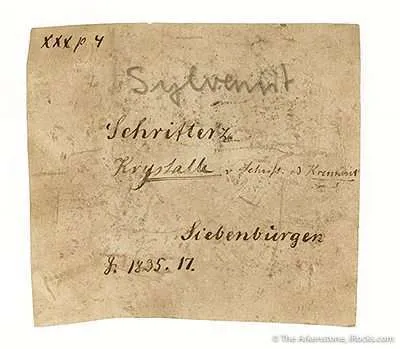 XXX p 4
Sylvanit
Schrifterz
Krystalle v. Schrift. u Krennerit
Siebenbürgen
J. 1835. 17.
© The Arkenstone, iRocks.com